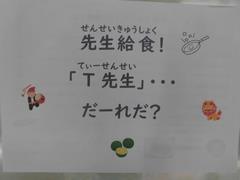 せんせいきゅうしょく
先生給食!
てぃーせんせい
「T先生」…
だーれだ?